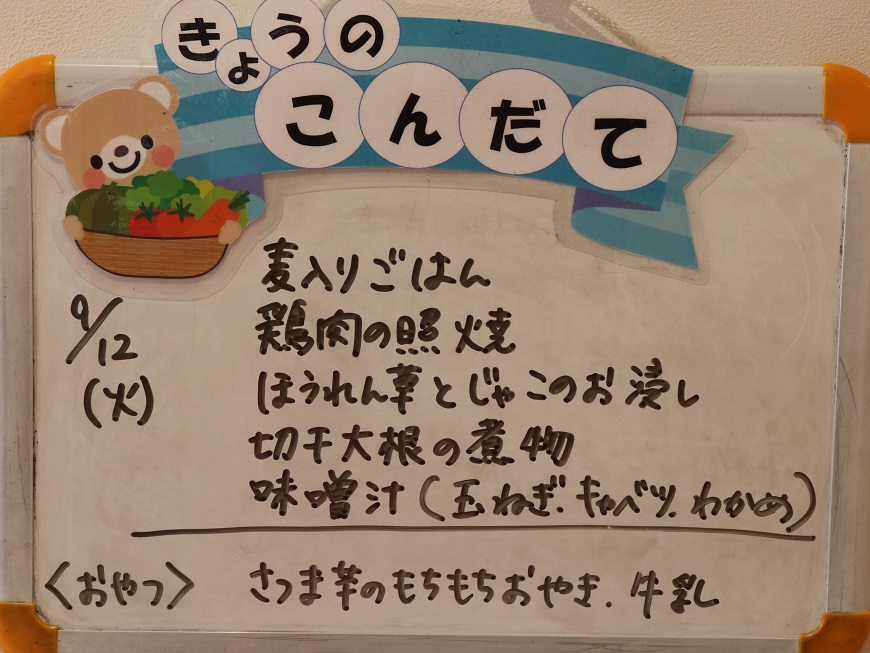 きょうの
こんだて
9/12
(火)
麦入りごはん
鶏肉の照焼
ほうれん草とじゃこのお浸し
切干大根の煮物
味噌汁(玉ねぎ.キャベツ.わかめ)
〈おやつ〉 さつま芋のもちもちおやき.牛乳